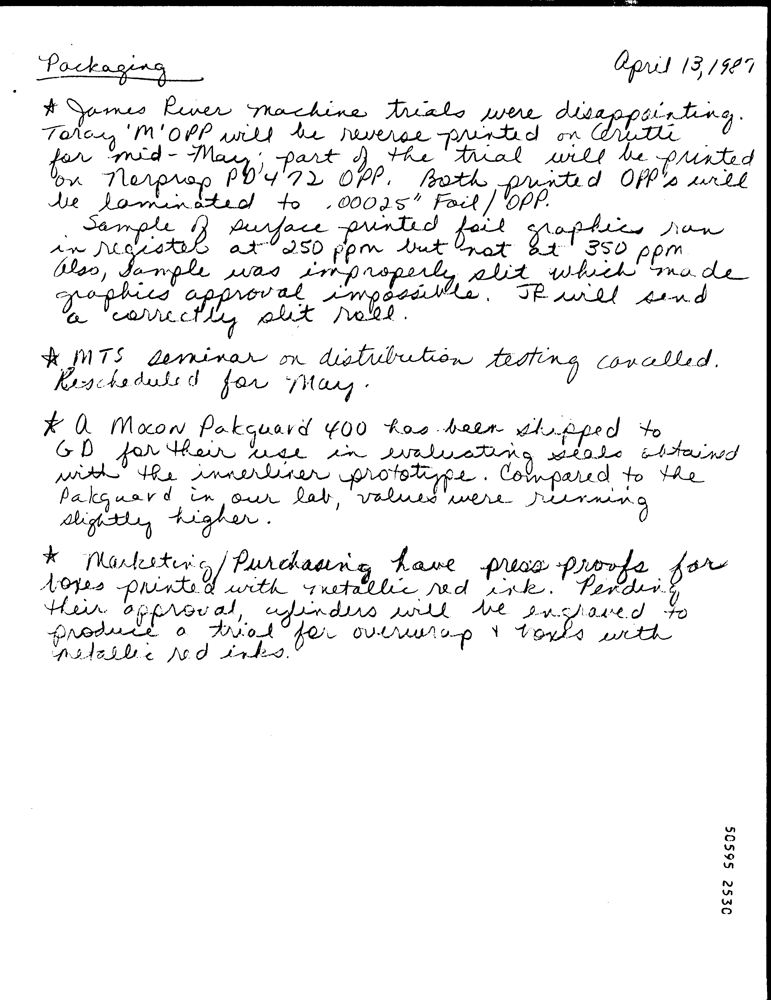 Packaging
April 13, 1987
* James River machine trials were disappointing.
Toray 'M' OPP will be reverse printed on Cerutti
for mid-May; part of the trial will be printed
on Norprop PD 472 OPP. Both printed OPP's will
be laminated to .00025" Foil/OPP.
Sample of surface printed foil graphics ran
in register at 250 ppm but not at 350 ppm
Also, sample was improperly slit which made
graphics approval impossible. JR will send
a correctly slit roll.
* MTS seminar on distribution testing cancelled.
Rescheduled for May.
* A Mocon Pakguard 400 has been shipped to
GD for their use in evaluating seals obtained
with the innerliner prototype. Compared to the
Pakguard in our lab, values were running
slightly higher.
* Marketing/Purchasing have press proofs for
boxes printed with metallic red ink. Pending
their approval, cylinders will be engraved to
produce a trial for overwrap & boxes with
metallic red inks.
50595 2530